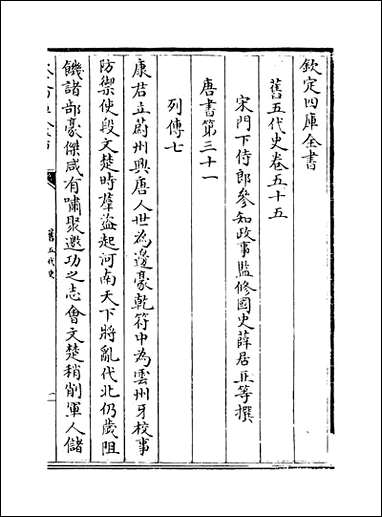 欽定四庫全書
舊五代史卷五十五
宋門下侍郎參知政事監修國史薛居正等撰
唐書第三十一
列傳七
康君立蔚州興唐人世為邊豪乾符中為雲州牙校事
防禦使段文楚時羣盜起河南天下將亂代北仍歲阻
饑諸部豪傑咸有嘯聚邀功之志會文楚稍削軍人儲
舊五代史
一